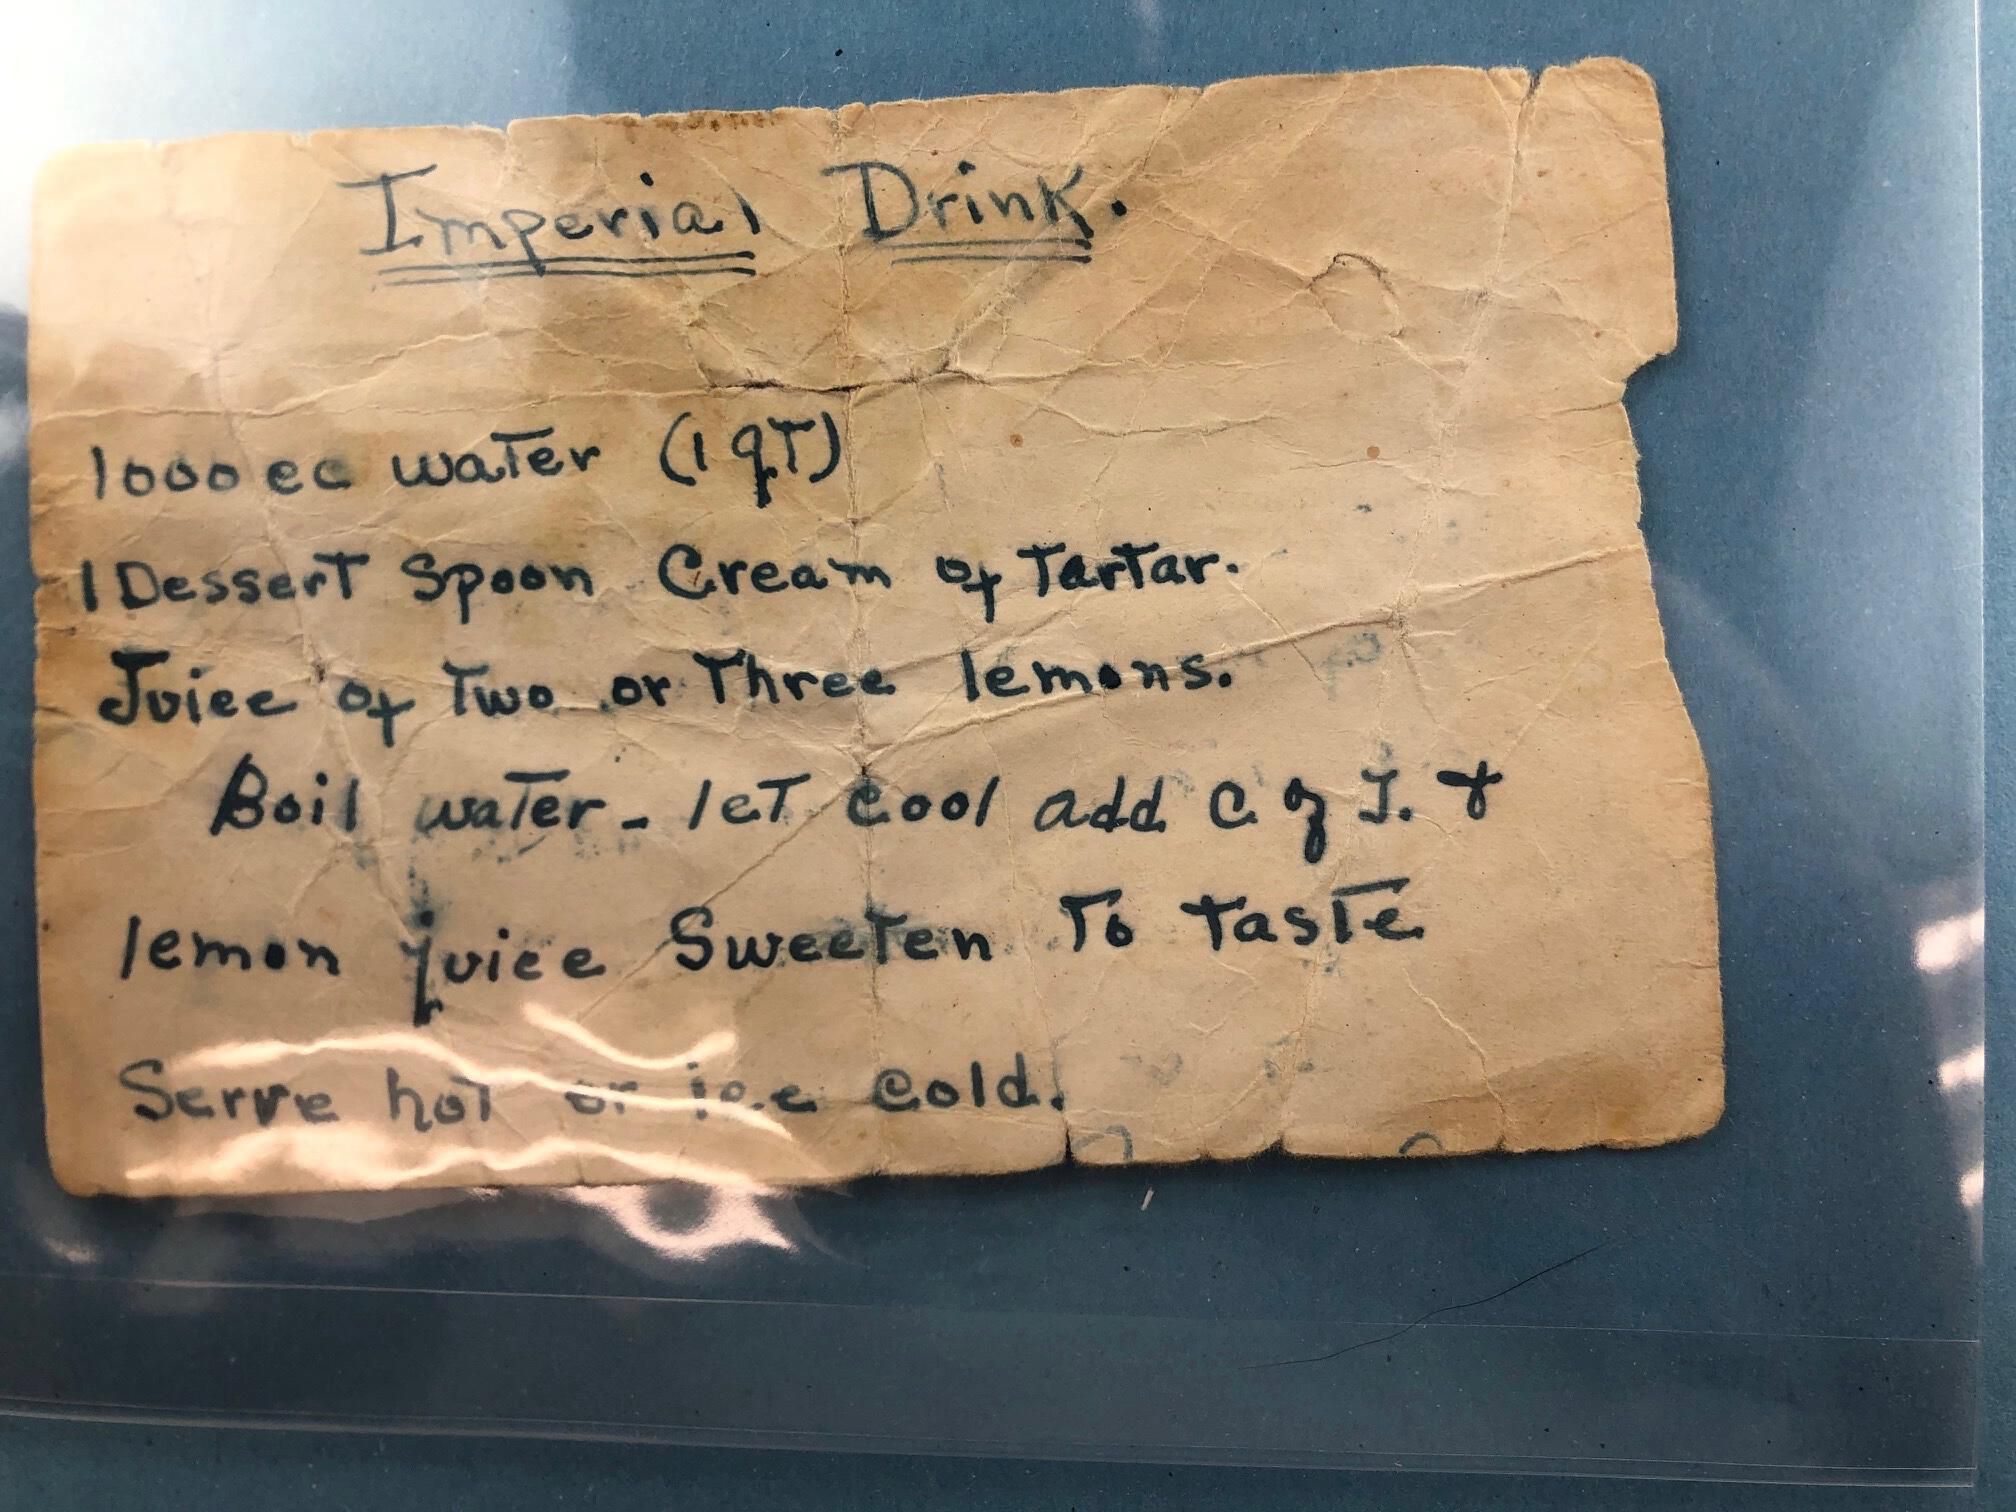 Imperial Drink.
1000 cc water (1 qT)
1 Dessert Spoon Cream of Tartar.
Juice of Two or Three lemons.
Boil water - let cool add C. of T. &
lemon juice Sweeten To taste
Serve hot or ice cold.